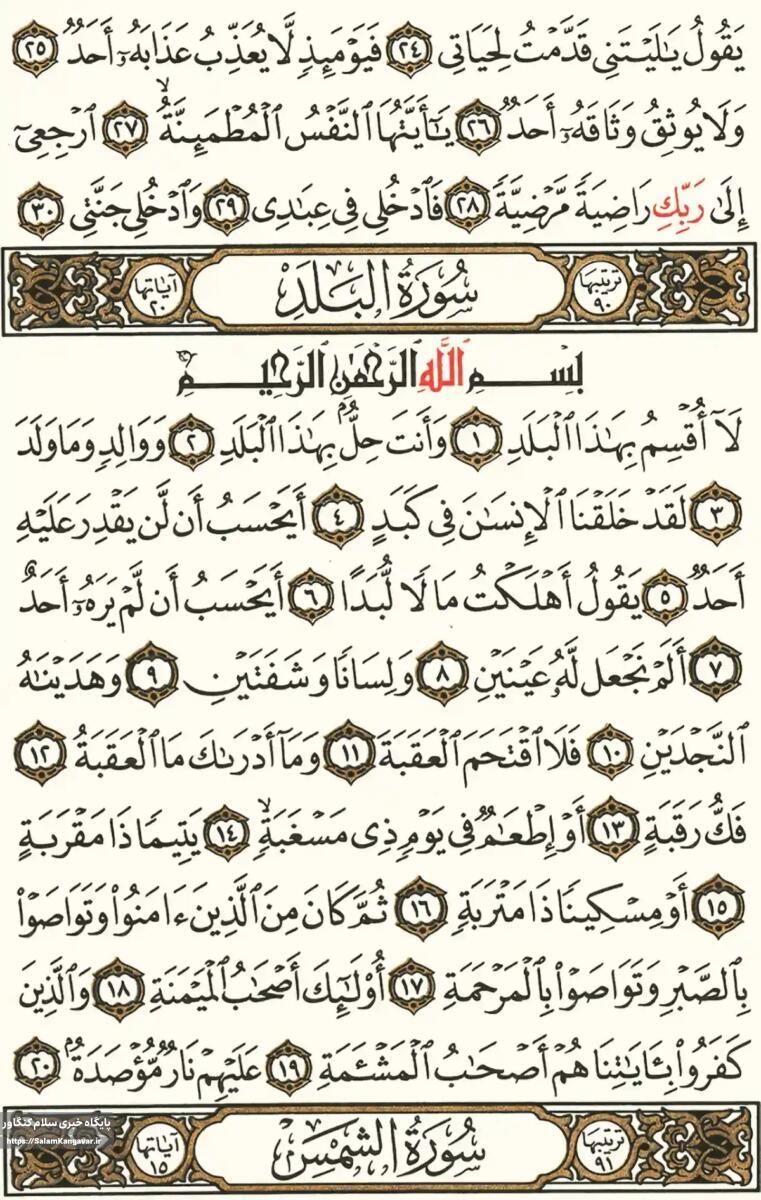 يَقُولُ يَـٰلَيْتَنِى قَدَّمْتُ لِحَيَاتِى ٢٤ فَيَوْمَئِذٍ لَّا يُعَذِّبُ عَذَابَهُۥٓ أَحَدٌ ٢٥
وَلَا يُوثِقُ وَثَاقَهُۥٓ أَحَدٌ ٢٦ يَـٰٓأَيَّتُهَا ٱلنَّفْسُ ٱلْمُطْمَئِنَّةُ ٢٧ ٱرْجِعِىٓ
إِلَىٰ رَبِّكِ رَاضِيَةً مَّرْضِيَّةً ٢٨ فَٱدْخُلِى فِى عِبَـٰدِى ٢٩ وَٱدْخُلِى جَنَّتِى ٣٠
ترتيبها ٩٠ سُورَةُ البَلَدِ آياتها ٢٠
بِسْمِ ٱللَّهِ ٱلرَّحْمَـٰنِ ٱلرَّحِيمِ
لَآ أُقْسِمُ بِهَـٰذَا ٱلْبَلَدِ ١ وَأَنتَ حِلٌّۢ بِهَـٰذَا ٱلْبَلَدِ ٢ وَوَالِدٍ وَمَا وَلَدَ
٣ لَقَدْ خَلَقْنَا ٱلْإِنسَـٰنَ فِى كَبَدٍ ٤ أَيَحْسَبُ أَن لَّن يَقْدِرَ عَلَيْهِ
أَحَدٌ ٥ يَقُولُ أَهْلَكْتُ مَالًا لُّبَدًا ٦ أَيَحْسَبُ أَن لَّمْ يَرَهُۥٓ أَحَدٌ
٧ أَلَمْ نَجْعَل لَّهُۥ عَيْنَيْنِ ٨ وَلِسَانًا وَشَفَتَيْنِ ٩ وَهَدَيْنَـٰهُ
ٱلنَّجْدَيْنِ ١٠ فَلَا ٱقْتَحَمَ ٱلْعَقَبَةَ ١١ وَمَآ أَدْرَىٰكَ مَا ٱلْعَقَبَةُ ١٢
فَكُّ رَقَبَةٍ ١٣ أَوْ إِطْعَـٰمٌ فِى يَوْمٍ ذِى مَسْغَبَةٍ ١٤ يَتِيمًا ذَا مَقْرَبَةٍ
١٥ أَوْ مِسْكِينًا ذَا مَتْرَبَةٍ ١٦ ثُمَّ كَانَ مِنَ ٱلَّذِينَ ءَامَنُوا۟ وَتَوَاصَوْا۟
بِٱلصَّبْرِ وَتَوَاصَوْا۟ بِٱلْمَرْحَمَةِ ١٧ أُو۟لَـٰٓئِكَ أَصْحَـٰبُ ٱلْمَيْمَنَةِ ١٨ وَٱلَّذِينَ
كَفَرُوا۟ بِـَٔايَـٰتِنَا هُمْ أَصْحَـٰبُ ٱلْمَشْـَٔمَةِ ١٩ عَلَيْهِمْ نَارٌ مُّؤْصَدَةٌۢ ٢٠
ترتيبها ٩١ سُورَةُ الشَّمْسِ آياتها ١٥
پایگاه خبری سلام کنگاور
https://SalamKangavar.ir